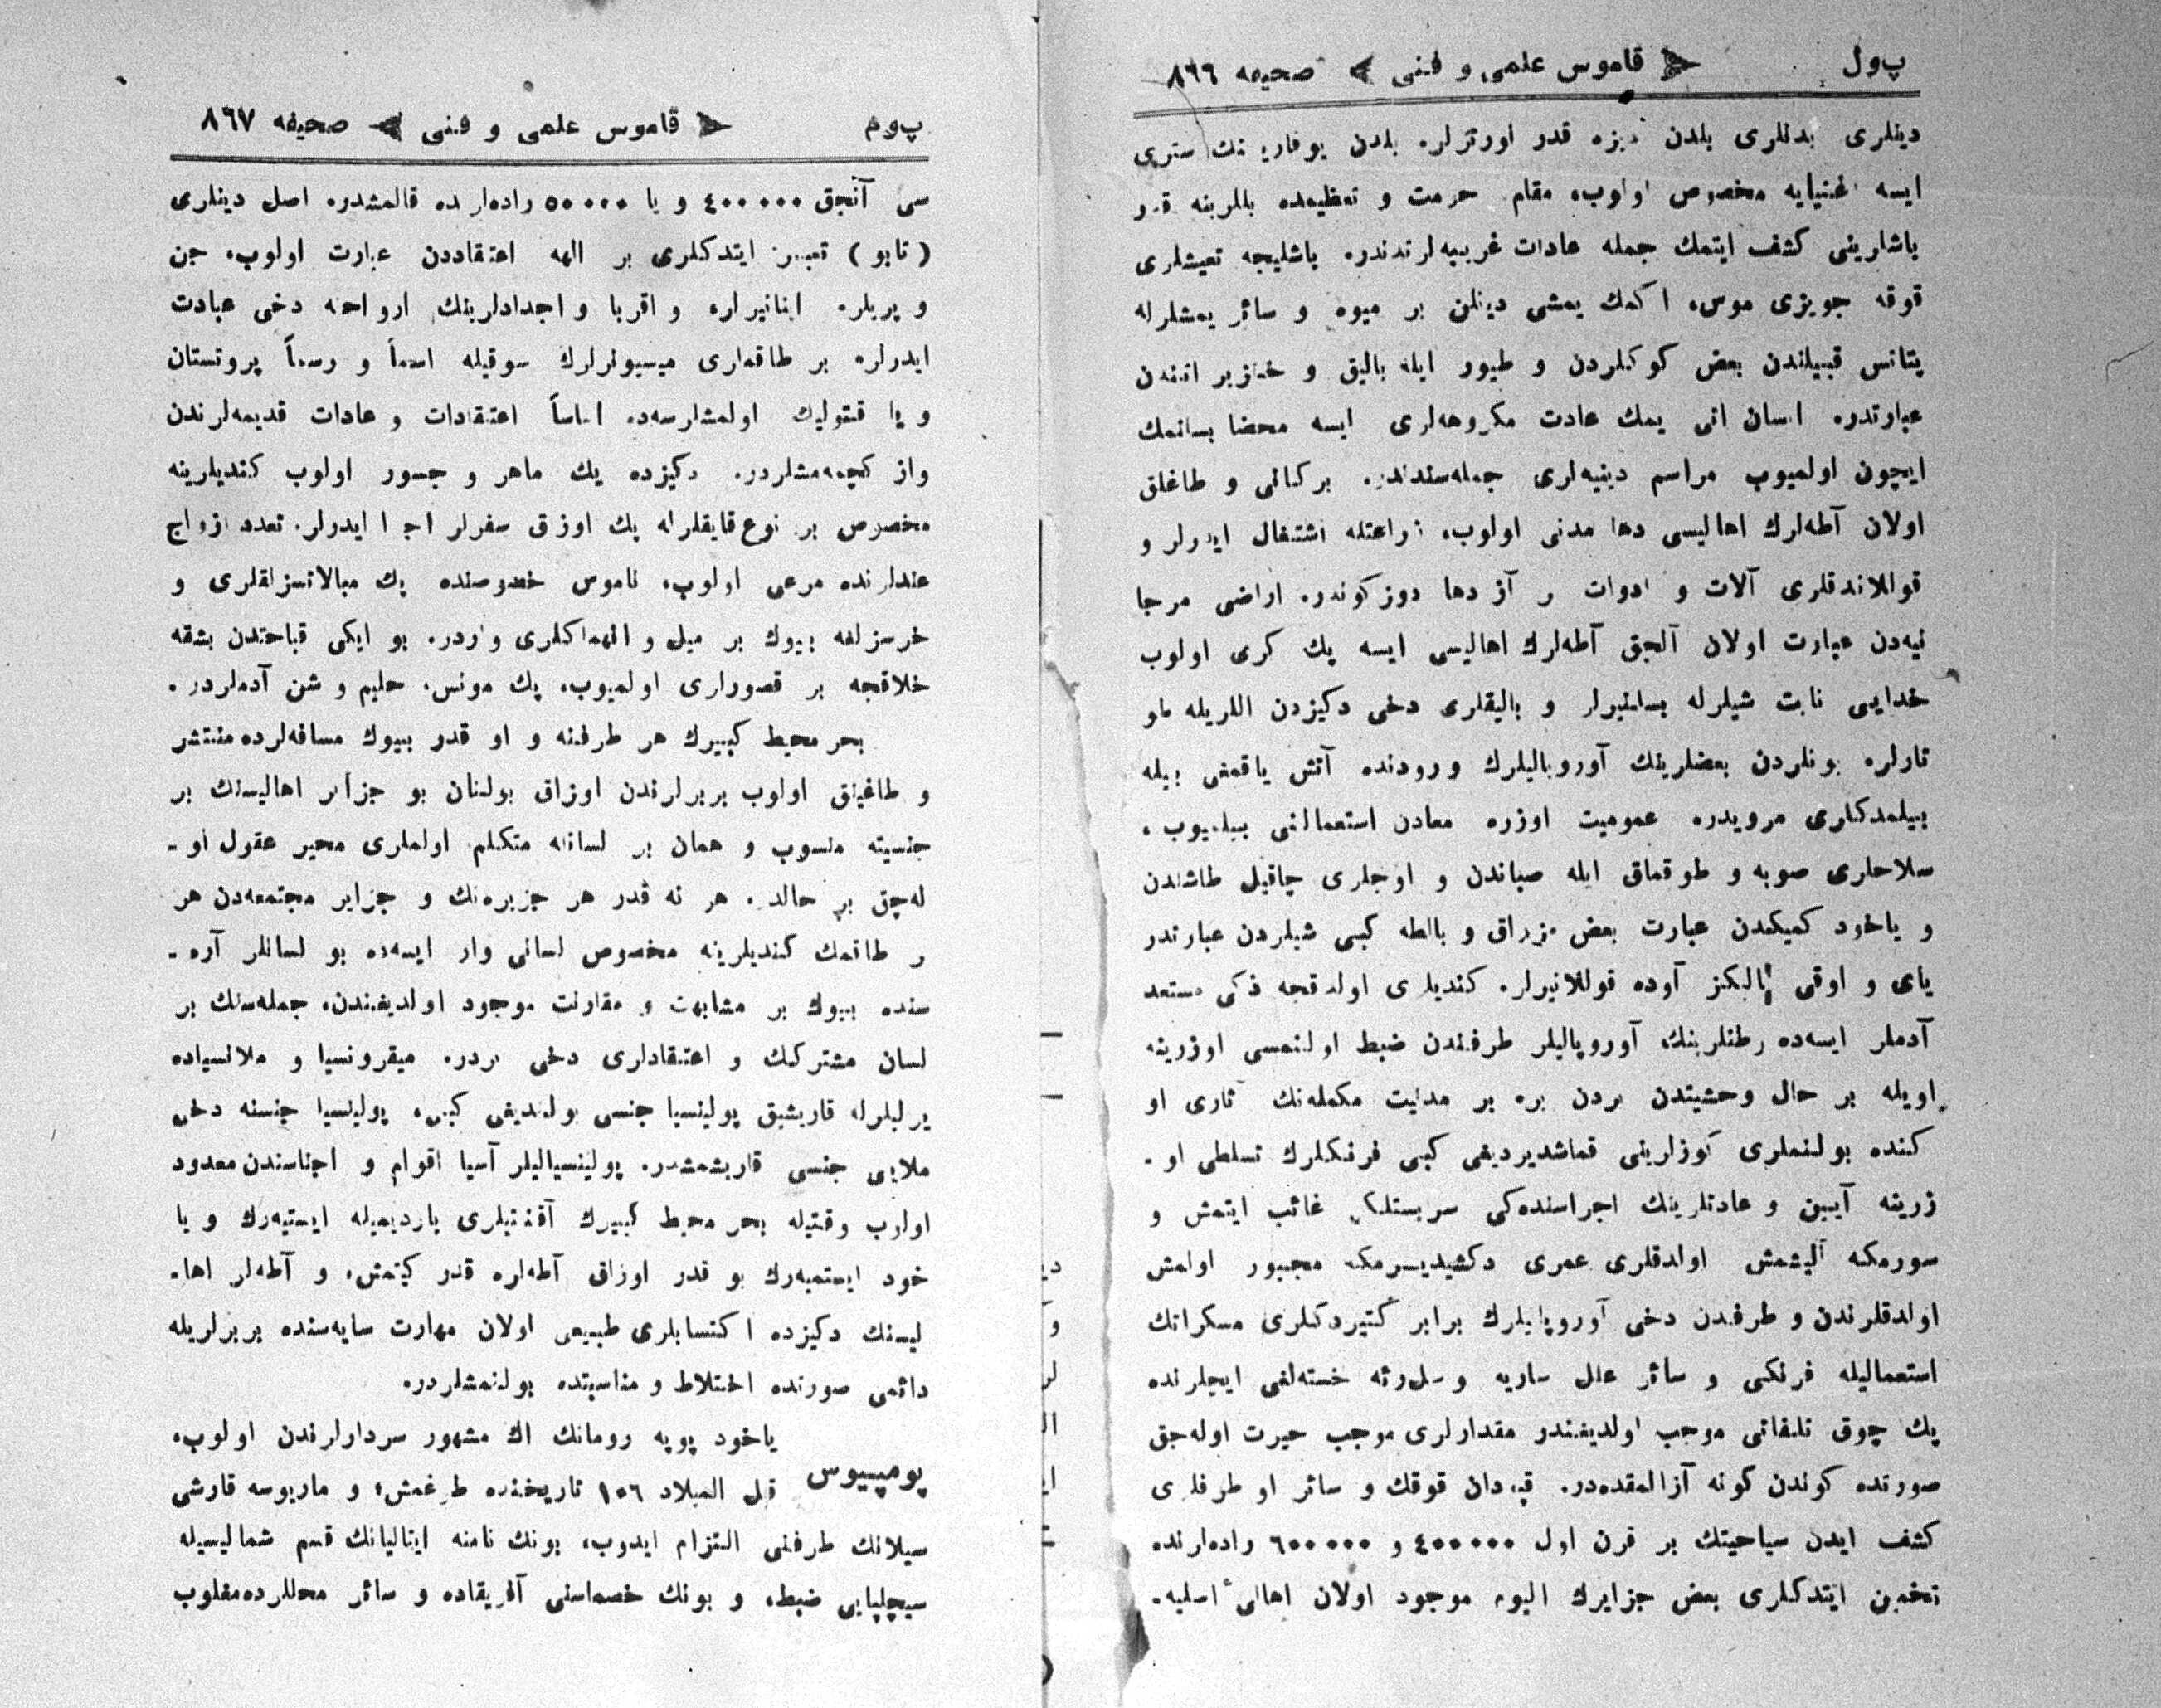 پ‌ول ﴿ قاموس علمی و فنی ﴾ صحیفه ٨٦٦
دینلری بدنلری بلدن دیزه قدر اورترلر. بلدن یوقارینك ستری
ایسه اغنیایه مخصوص اولوب، مقام حرمت و تعظیمده بللرینه قدر
باشلرینی كشف ایتمك جمله عادات غریبه‌لرندندر. باشلیجه تعیشلری
قوقه جویزی موس، اكمك یمشی دینلن بر میوه و سائر یمشلرله
پتاتس قبیلندن بعض كوكلردن و طیور ایله بالیق و خنزیر اتندن
عبارتدر. انسان اتی یمك عادت مكروهه‌لری ایسه محضا بسلنمك
ایچون اولمیوب مراسم دینیه‌لری جمله‌سندندر. بركانی و طاغلق
اولان آطه‌لرك اهالیسی دها مدنی اولوب، زراعتله اشتغال ایدرلر و
قوللاندقلری آلات و ادوات بر آز دها دوزكوندر. اراضی مرجا
نیه‌دن عبارت اولان آلچق آطه‌لرك اهالیسی ایسه پك كری اولوب
خدایی نابت شیلرله بسلنیرلر و بالیقلری دخی دكیزدن اللریله طو
تارلر. بونلردن بعضلرینك آوروپالیلرك ورودنده آتش یاقمغی بیله
بیلمدكلری مرویدر. عمومیت اوزره معادن استعمالنی بیلمیوب،
سلاحلری صوپه و طوقماق ایله صپاندن و اوجلری چاقیل طاشندن
و یاخود كمیكدن عبارت بعض مزراق و بالطه كبی شیلردن عبارتدر
یای و اوقی یالكز آوده قوللانیرلر. كندیلری اولدقجه ذكی مستعد
آدملر ایسه‌ده وطنلرینك، آوروپالیلر طرفندن ضبط اولنمسی اوزرینه
اویله بر حال وحشیتدن بردن بره بر مدنیت مكمله‌نك آثاری او
كنده بولنملری كوزلرینی قماشدیردیغی كبی فرنكلرك تسلطی او ـ
زرینه آیین و عادتلرینك اجراسنده‌كی سربستلكی غائب ایتمش و
سورمكه آلیشمش اولدقلری عمری دكشدیرمكه مجبور اولمش
اولدقلرندن و طرفدن دخی آوروپالیلرك برابر كتیردكلری مسكراتك
استعمالیله فرنكی و سائر علل ساریه و سل‌رئه خسته‌لغی ایچلرنده
پك چوق تلفاتی موجب اولدیغندن مقدارلری موجب حیرت اوله‌جق
صورتده كوندن كونه آزالمقده‌در. قپودان قوقك و سائر او طرفلری
كشف ایدن سیاحیتك بر قرن اول ٤٠٠٠٠٠ و ٦٠٠٠٠٠ راده‌لرنده
تخمین ایتدكلری بعض جزایرك الیوم موجود اولان اهالیٔ اصلیه‌ـ
پ‌وم ﴿ قاموس علمی و فنی ﴾ صحیفه ٨٦٧
سی آنجق ٤٠٠٠٠٠ و یا ٥٠٠٠٠ راده‌لرده قالمشدر. اصل دینلری
( تابو ) تعبیر ایتدكلری بر الهه اعتقاددن عبارت اولوب، جن
و پریلره اینانیرلر، و اقربا و اجدادلرینك ارواحنه دخی عبادت
ایدرلر. بر طاقملری میسیونرلرك سوقیله اسماً و رسماً پروتستان
و یا قتولیك اولمشلرسه‌ده اساساً اعتقادات و عادات قدیمه‌لرندن
واز كچمه‌مشلردر. دكیزده پك ماهر و جسور اولوب كندیلرینه
مخصوص بر نوع قایقلرله پك اوزق سفرلر اجرا ایدرلر. تعدد ازواج
عندلرنده مرعی اولوب، ناموس خصوصنده پك مبالاتسزلقلری و
خرسزلغه بیوك بر میل و انهماكلری واردر. بو ایكی قباحتدن بشقه
خلاقجه بر قصورلری اولمیوب، پك مونس، حلیم و شن آدملردر.
بحر محیط كبیرك هر طرفنه و او قدر بیوك مسافه‌لرده منتشر
و طاغینق اولوب بربرلرندن اوزاق بولنان بو جزائر اهالیسنك بر
جنسیته منسوب و همان بر لسانله متكلم اولملری محیر عقول او ـ
له‌جق بر حالدر. هر نه قدر هر جزیره‌نك و جزایر مجتمعه‌دن هر
بر طاقمك كندیلرینه مخصوص لسانی وار ایسه‌ده بو لسانلر آره ـ
سنده بیوك بر مشابهت و مقارنت موجود اولدیغندن، جمله‌سنك بر
لسان مشتركك و اعتقادلری دخی بردر. میقرونسیا و ملانسیاده
یرلیلرله قاریشیق پولینسیا جنسی بولندیغی كبی، پولینسیا جنسنه دخی
ملایی جنسی قاریشمشدر. پولینسیالیلر آسیا اقوام و اجناسندن معدود
اولوب وقتیله بحر محیط كبیرك آقنتیلری یاردیمیله ایستیه‌رك و یا
خود ایستمیه‌رك بو قدر اوزاق آطه‌لره قدر كیتمش، و آطه‌لر اها ـ
لیسنك دكیزده اكتسابلری طبیعی اولان مهارت سایه‌سنده بربرلریله
دائمی صورتده اختلاط و مناسبتده بولنمشلردر.
پومپیوس یاخود پوپه رومانك اك مشهور سردارلرندن اولوب،
قبل المیلاد ١٠٦ تاریخنده طوغمش؛ و ماریوسه قارشی
سیلانك طرفنی التزام ایدوب، بونك نامنه ایتالیانك قسم شمالیسیله
سیچلیایی ضبط، و بونك خصماسنی آفریقاده و سائر محللرده مغلوب